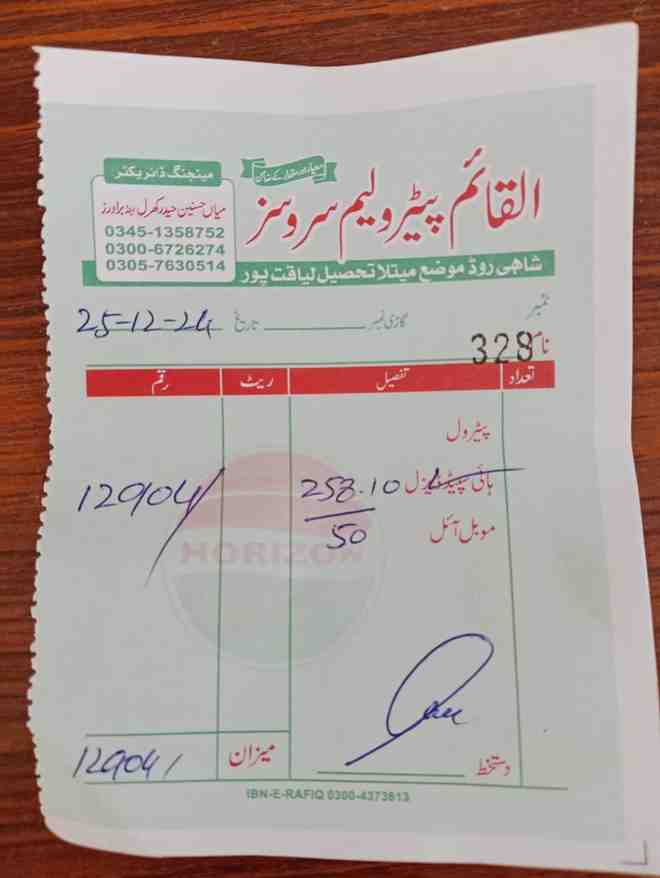 معیار اور مقدار کے ضامن
القائم پیٹرولیم سروسز
مینجنگ ڈائریکٹر
میاں حسنین حیدر کھرل اینڈ برادرز
0345-1358752
0300-6726274
0305-7630514
شاھی روڈ موضع میتلا تحصیل لیاقت پور
نمبر
گاڑی نمبر ــــــــ تاریخ 25-12-24
نام 328
تعداد تفصیل ریٹ رقم
پیٹرول
ہائی سپیڈ ڈیزل 258.10 12904/
موبل آئل 50
HORIZON
میزان 12904/
دستخط
IBN-E-RAFIQ 0300-4373613